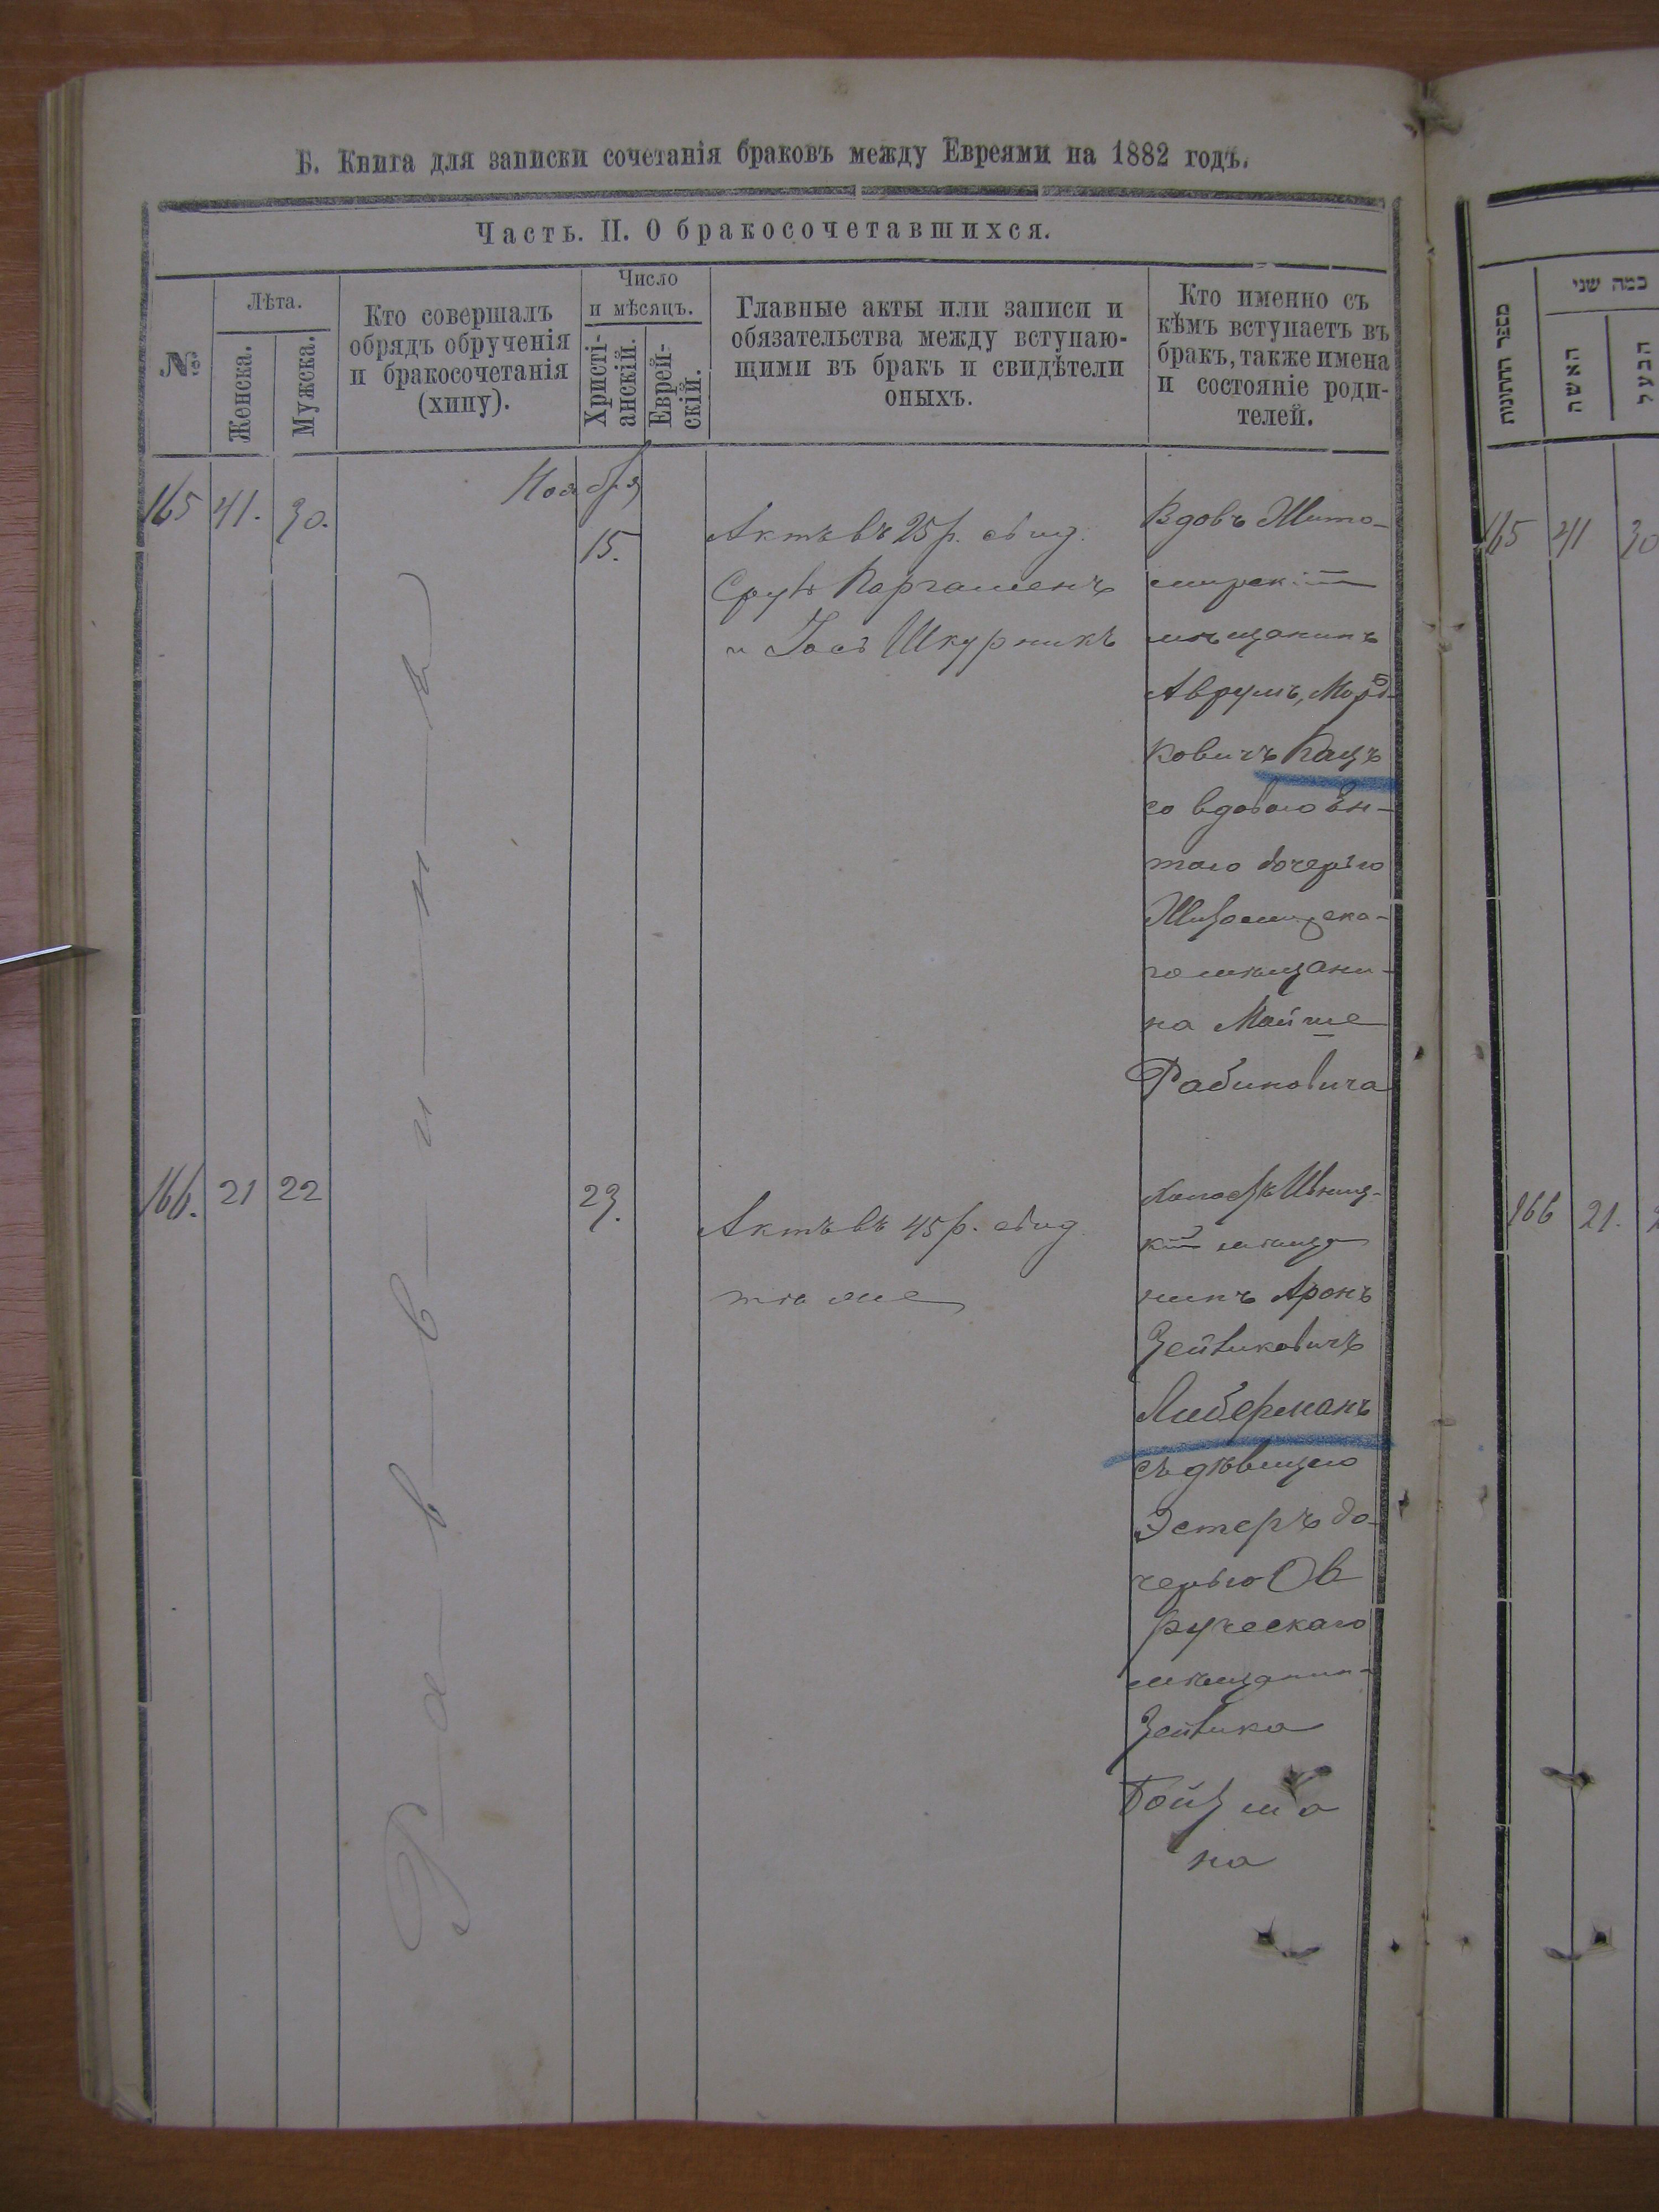 Б. Книга для записки сочетанія браковъ между Евреями на 1882 годъ.
Часть. II. О бракосочетавшихся.
№
Лѣта.
Женска.
Мужска.
Кто совершалъ
обрядъ обрученія
и бракосочетанія
(хипу).
Число
и мѣсяцъ.
Христі-
анскій.
Еврей-
скій.
Главные акты или записи и
обязательства между вступаю-
щими въ бракъ и свидѣтели
оныхъ.
Кто именно съ
кѣмъ вступаетъ въ
бракъ, также имена
и состояніе роди-
телей.
165 41. 30.
Ноября
15.
Актъ въ 25 р. свид.
Сруль
и Іось Шкурникъ
Вдовъ Жито-
мирскій
мѣщанинъ
Аврумъ, Морд-
ковичъ Кацъ
со вдовою
дочерью
Житомирска-
го мѣщани-
на Мойше
Рабиновича
Раввинъ
166. 21 22
23.
Актъ въ 45 р. свид.
тѣ же
Холостъ Ивниц-
кій мѣща
нинъ Аронъ
Зейвиковичъ
Либерманъ
съ дѣвицею
Эстеръ до-
черью Ов
ручскаго
мѣщанин-
Зейвика
Гойзма
на
מספר החתונות
כמה שני
האשה
הבעל
165 41 30
166 21.